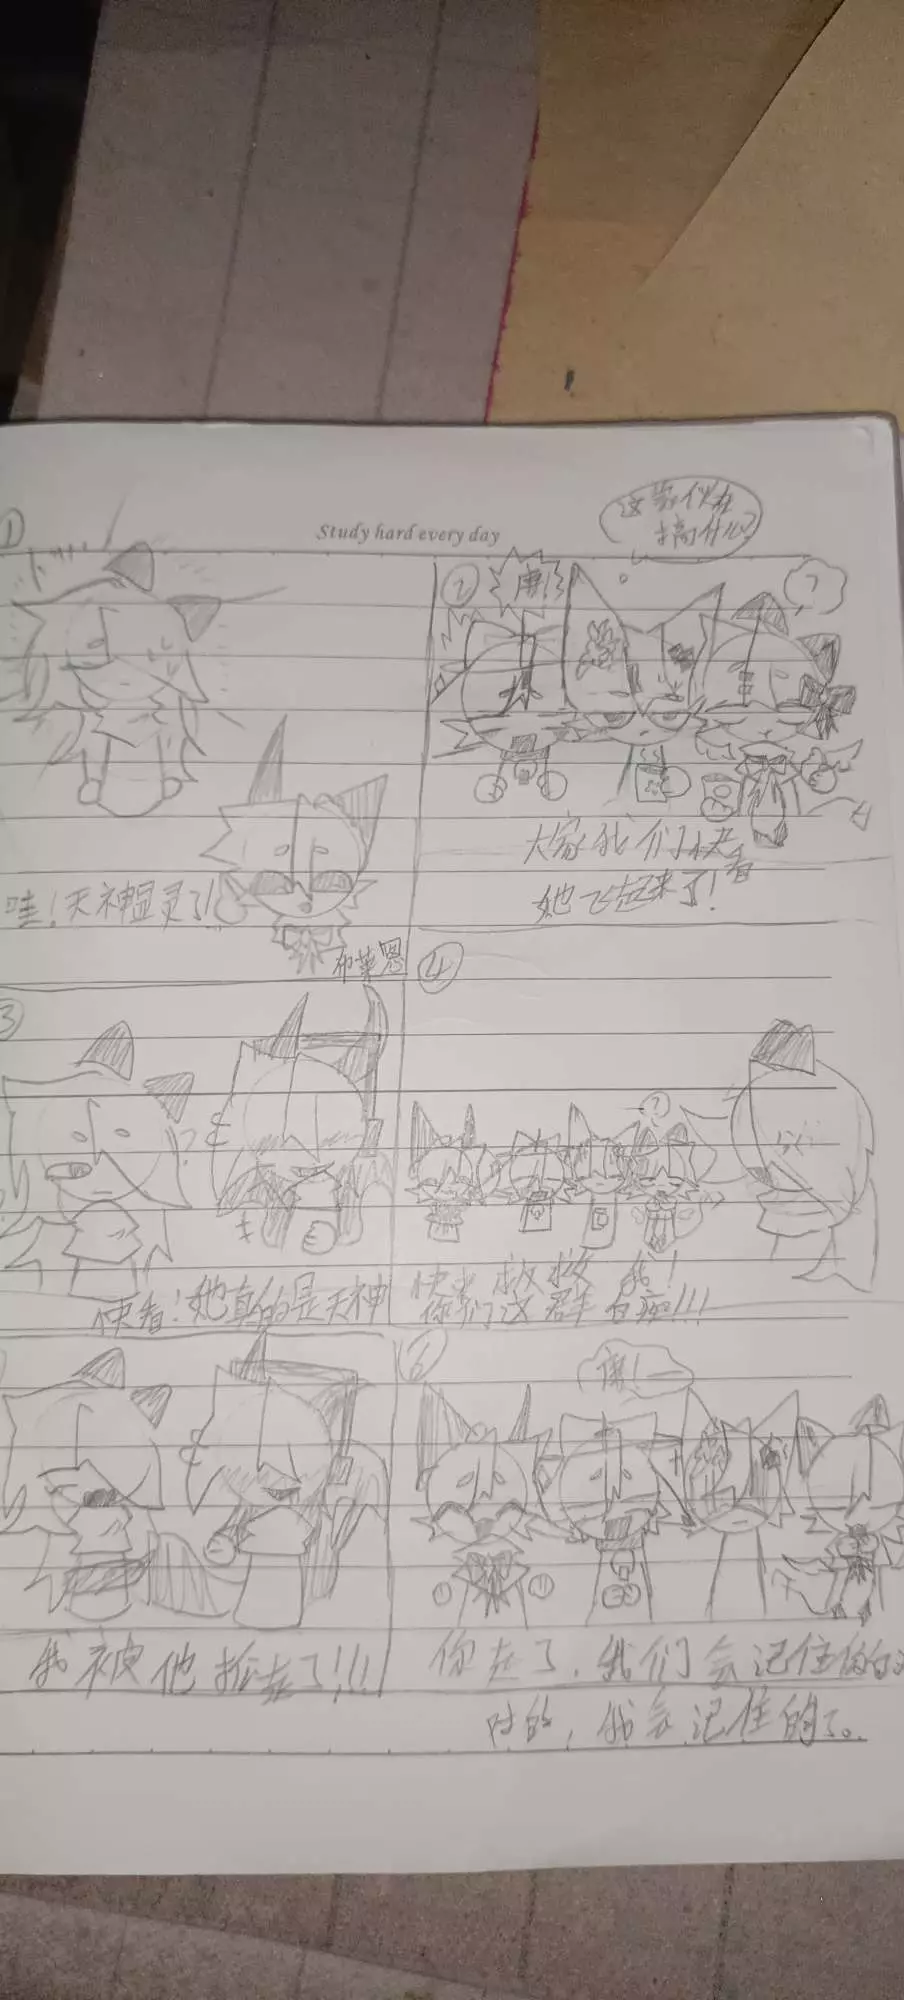 Study hard every day
①
哇！天神显灵了！
布莱恩
②
这家伙在
搞什么？
？
大家我们快看
她飞起来了！
3
？
快看！她真的是天神
④
？
快来救救我！
你们这群白痴！！！
我被他抓走了！！！
⑥
你走了，我们会记住你的
对的，我会记住的了。